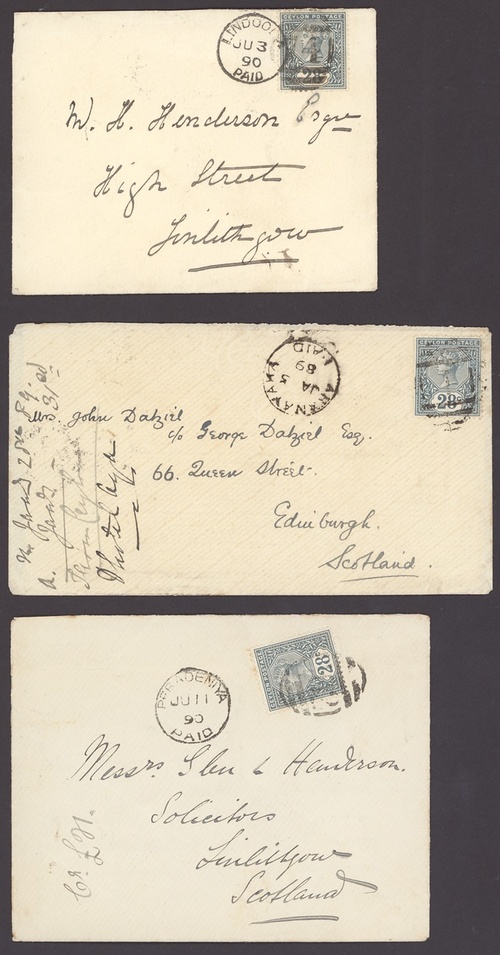 JU 3
90
PAID
CEYLON POSTAGE
28
W. H. Henderson Esqre
High Street
Linlithgow
PAID
89
JA 5
CEYLON POSTAGE
28
Mrs John Dalziel
c/o George Dalziel Esq.
66. Queen Street.
Edinburgh.
Scotland.
PERADENIYA
JU 11
90
PAID
CEYLON POSTAGE
28
Messrs Glen & Henderson.
Solicitors
Linlithgow
Scotland